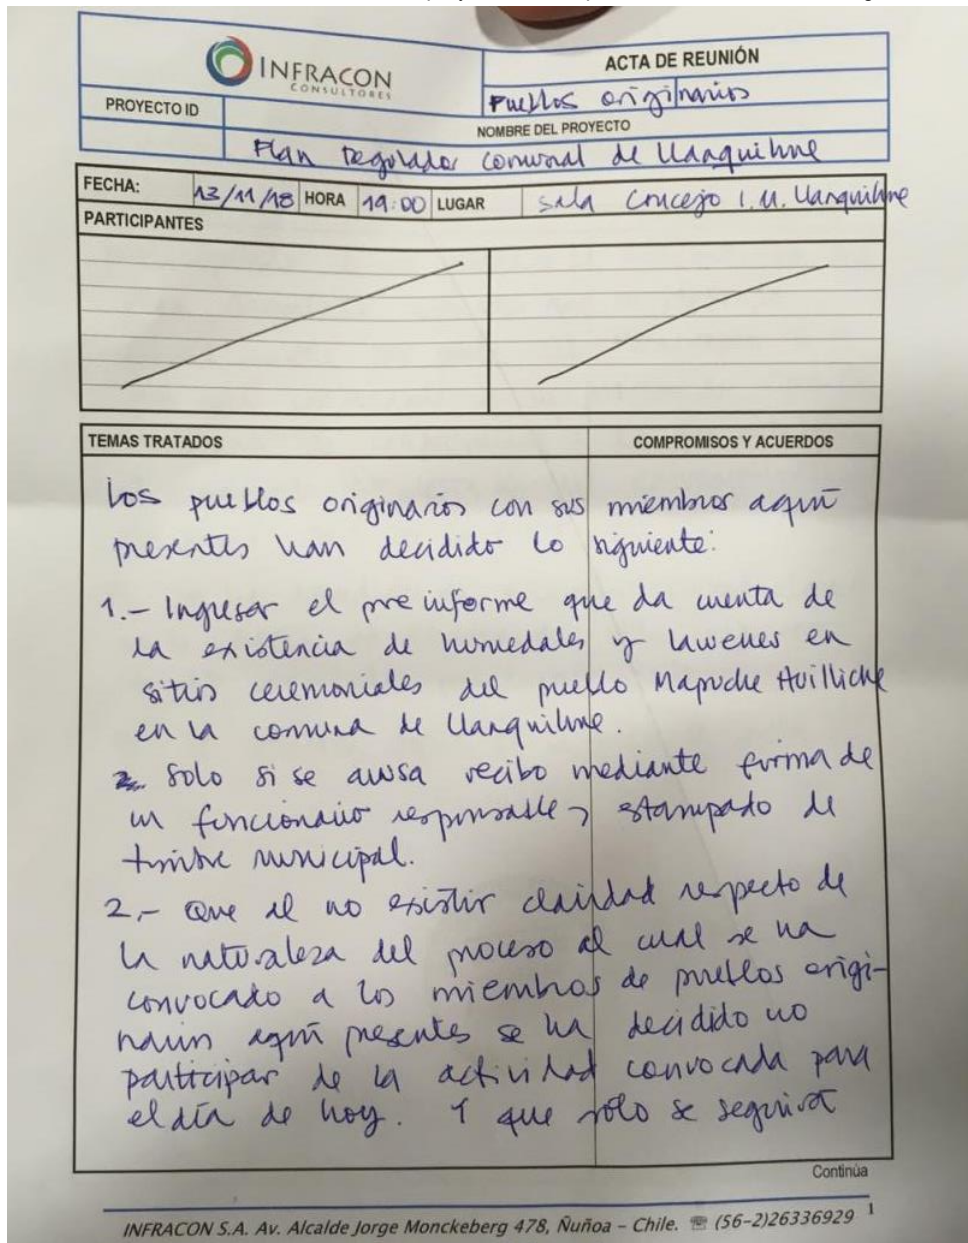 INFRACON
CONSULTORES
ACTA DE REUNIÓN
Pueblos originarios
PROYECTO ID
NOMBRE DEL PROYECTO
Plan regulador comunal de Llanquihue
FECHA: 13/11/18 HORA 19:00 LUGAR Sala Concejo I.M. Llanquihue
PARTICIPANTES
TEMAS TRATADOS COMPROMISOS Y ACUERDOS
Los pueblos originarios con sus miembros aquí
presentes han decidido lo siguiente:
1.- Ingresar el pre informe que da cuenta de
la existencia de humedales y lawenes en
sitios ceremoniales del pueblo Mapuche Huilliche
en la comuna de Llanquihue.
Solo si se acusa recibo mediante firma de
un funcionario responsable y estampado de
timbre municipal.
2,- Que al no existir claridad respecto de
la naturaleza del proceso al cual se ha
convocado a los miembros de pueblos origi-
narios aquí presentes se ha decidido no
participar de la actividad convocada para
el día de hoy. Y que solo se seguirá
Continúa
INFRACON S.A. Av. Alcalde Jorge Monckeberg 478, Ñuñoa – Chile. ☏ (56-2)26336929 1